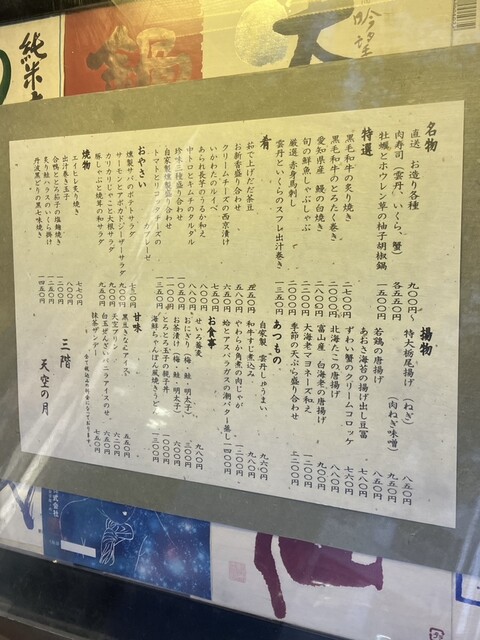 名物
直送 お造り各種 九〇〇円〜
肉寿司(雲丹、いくら、蟹) 各五五〇円
牡蠣とホウレン草の柚子胡椒鍋 一五〇〇円
特選
黒毛和牛の炙り焼き
黒毛和牛のとろたく巻き
愛知県産 鰻の白焼き
旬の鮮魚しゃぶしゃぶ
厳選 赤身馬刺し
雲丹といくらのスフレ出汁巻き
肴
茹で上げだだ茶豆
お新香盛り合わせ
クリームチーズの西京漬け
いかわたのルイベ
あられ長芋のうるか和え
中トロとキムチのタルタル
珍味三種盛り合わせ
自家製燻製盛り合わせ
おやさい
燻製サバのポテトサラダ
サーモンとアボカドシーザーサラダ
カリカリじゃこと大根サラダ
豚しゃぶと焼茸の和サラダ
焼物
エイヒレ炙り焼き
出汁巻き玉子
炙り鮭ハラスのいくら掛け
丹波黒どりの黒七味焼き
揚物
特大栃尾揚げ (ねぎ) 八五〇円
(肉ねぎ味噌) 九五〇円
若鶏の唐揚げ 八五〇円
あおさ海苔の揚げ出し豆冨 七八〇円
ずわい蟹のクリームコロッケ 七六〇円
北海たこの唐揚げ 八五〇円
富山産 白海老の唐揚げ 九〇〇円
大海老マヨネーズ和え
季節の天ぷら盛り合わせ
あつもの
自家製 雲丹しゅうまい 九六〇円
和牛すじ煮込み 九八〇円
やわらか角煮の肉じゃが
蛤とアスパラガスの潮バター蒸し 一四〇〇円
お食事
せいろ蕎麦 九八〇円
おにぎり(梅・鮭・明太子) 三〇〇円
お茶漬け(梅・鮭・明太子)
とろとろ玉子の親子丼
海鮮ちゃんぽん風焼きうどん 一三〇〇円
甘味
黒豆きなこアイス 五五〇円
天空プリン 六二〇円
白玉ぜんざい バニラアイスのせ
抹茶サンデー 七五〇円
三階
天空の月
純米
鍋